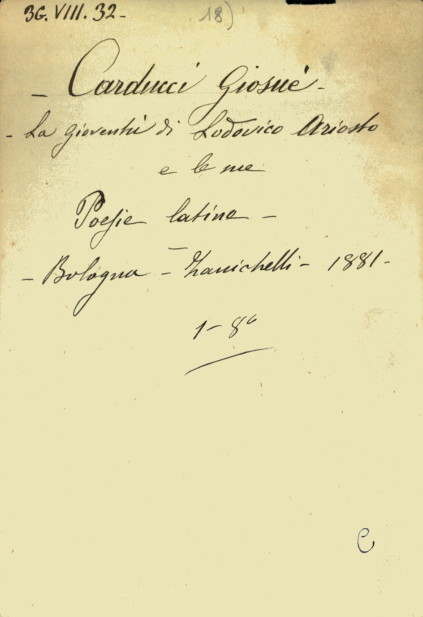 36.VIII.32- 18)
- Carducci Giosuè -
- La gioventù di Lodovico Ariosto
e le sue
Poesie latine -
- Bologna - Zanichelli - 1881 -
1- 8º
C